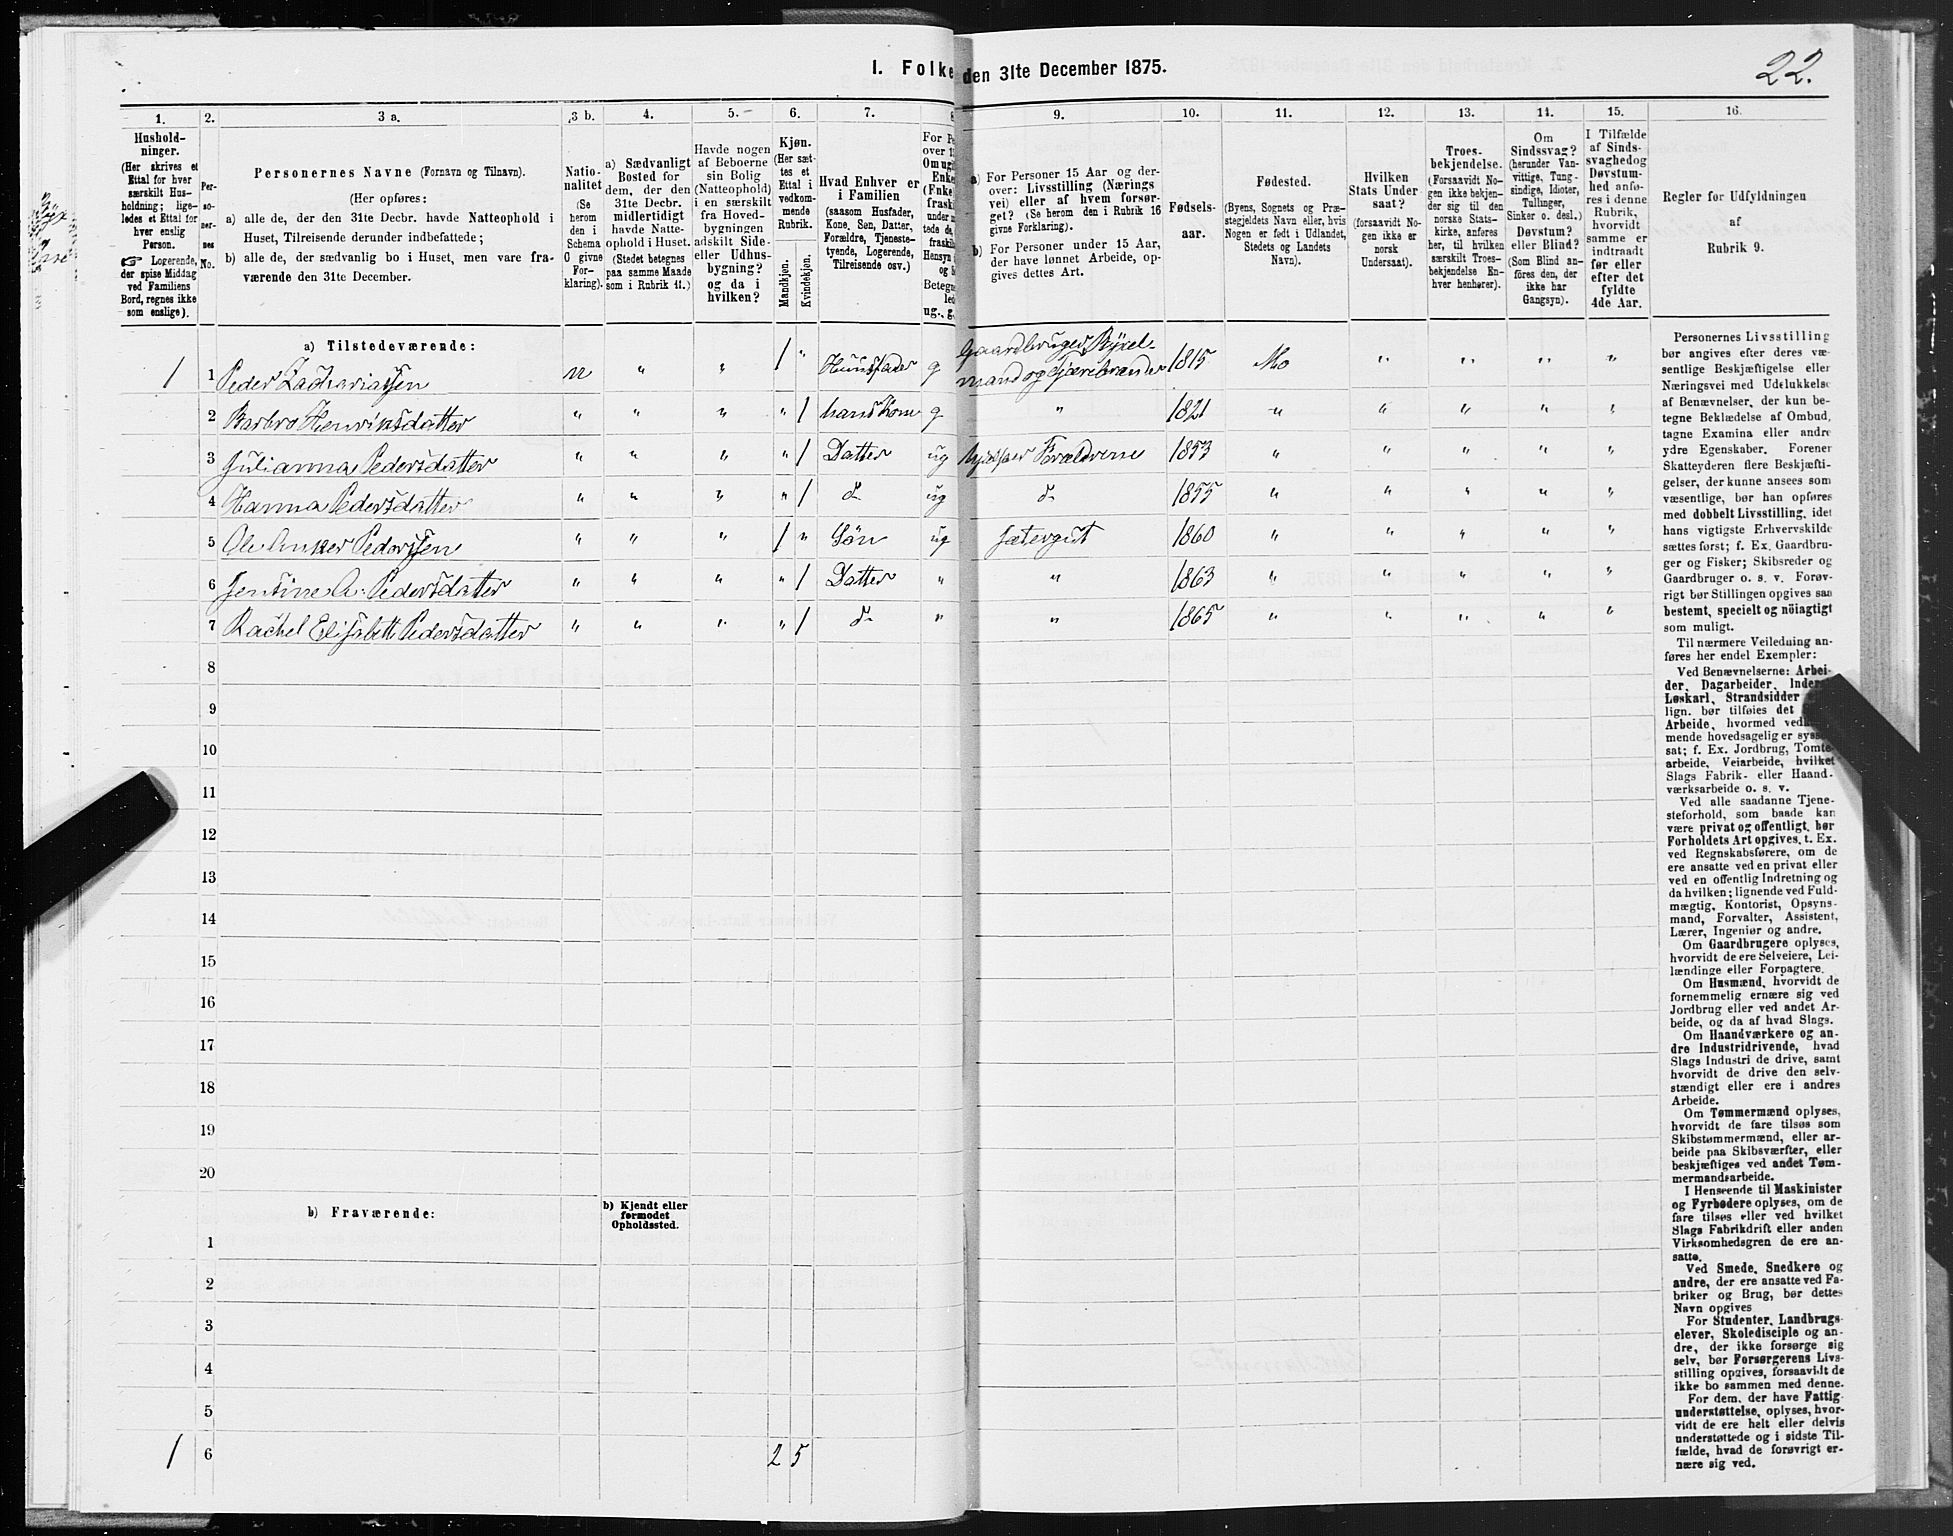 I. Folke den 31te December 1875.
22.
1. 2. 3 a. 3 b. 4. 5. 6. 7. 9. 10. 11. 12. 13. 14. 15. 16.
Hushold-
ninger.
(Her skrives et
Ettal for hver
særskilt Hus-
holdning; lige-
ledes et Ettal for
hver enslig
Person.
☞ Logerende,
der spise Middag
ved Familiens
Bord, regnes ikke
som enslige).
Per-
so-
ner-
nes
No.
Personernes Navne (Fornavn og Tilnavn).
(Her opføres:
a) alle de, der den 31te Decbr. havde Natteophold i
Huset, Tilreisende derunder indbefattede;
b) alle de, der sædvanlig bo i Huset, men vare fra-
værende den 31te December.
Natio-
nalitet
(Se
herom
den i
Schema
C givne
For-
klaring).
a) Sædvanligt
Bosted for
dem, der den
31te Decbr.
midlertidigt
havde Natte-
ophold i Huset.
(Stedet betegnes
paa samme Maade
som i Rubrik 11.)
Havde nogen
af Beboerne
sin Bolig
(Natteophold)
i en særskilt
fra Hoved-
bygningen
adskilt Side-
eller Udhus-
bygning?
og da i
hvilken?
Kjøn.
(Her sæt-
tes et
Ettal i
vedkom-
mende
Rubrik.
Mandkjøn.
Kvindekjøn.
Hvad Enhver er
i Familien
(saasom Husfader,
Kone, Søn, Datter,
Forældre, Tjeneste-
tyende, Logerende,
Tilreisende osv.)
a) For Personer 15 Aar og der-
over: Livsstilling (Nærings
vei) eller af hvem forsør-
get? (Se herom den i Rubrik 16
givne Forklaring).
b) For Personer under 15 Aar,
der have lønnet Arbeide, op-
gives dettes Art.
Fødsels-
aar.
Fødested.
(Byens, Sognets og Præ-
stegjeldets Navn eller, hvis
Nogen er født i Udlandet,
Stedets og Landets
Navn).
Hvilken
Stats Under-
saat?
(forsaavidt No-
gen ikke er
norsk
Undersaat).
Troes-
bekjendelse.
(Forsaavidt No-
gen ikke bekjen-
der sig til den
norske Stats-
kirke, anføres
her, til hvilken
særskilt Troes-
bekjendelse En-
hver henhører).
Om
Sindssvag?
(herunder Van-
vittige, Tung-
sindige, Idioter,
Tullinger,
Sinker o. desl.)
Døvstum?
eller Blind?
(Som Blind an-
føres den, der
ikke har
Gangsyn).
I Tilfælde
af Sinds-
svaghed og
Døvstum-
hed anfø-
res i denne
Rubrik,
hvorvidt
samme er
indtraadt
før eller
efter det
fyldte
4de Aar.
Regler for Udfyldningen
af
Rubrik 9.
a) Tilstedeværende:
1 1 Peder Zachariassen n " " 1 " Huusfader g Gaardbruger, Pyxel-
mand og Tjærebrænder 1815 Mo " " " "
2 Barbro Henriksdatter " " " " 1 hans Kone g " 1821 " " " " "
3 Julianna Pedersdatter " " " " 1 Datter ug Forældrene 1853 " " " " "
4 Hanna Pedersdatter " " " " 1 d ug d 1855 " " " " "
5 Ole Anker Pedersen " " " 1 " Søn ug Jætergut 1860 " " " " "
6 Jensine A. Pedersdatter " " " " 1 Datter " " 1863 " " " " "
7 Rachel Elisabett Pedersdatter " " " " 1 d " " 1865 " " " " "
8
9
10
11
12
13
14
15
16
17
18
19
20
b) Fraværende:
b) Kjendt eller
formodet
Opholdssted.
1
2
3
4
5
1 6 2 5
Personernes Livsstilling
bør angives efter deres væ-
sentlige Beskjæftigelse eller
Næringsvei med Udelukkelse
af Benævnelser, der kun be-
tegne Beklædelse af Ombud,
tagne Examina eller andre
ydre Egenskaber. Forener
Skatteyderen flere Beskjæfti-
gelser, der kunne ansees som
væsentlige, bør han opføres
med dobbelt Livsstilling, idet
hans vigtigste Erhvervskilde
sættes først; f. Ex. Gaardbru-
ger og Fisker; Skibsreder og
Gaardbruger o. s. v. Forøv-
rigt bør Stillingen opgives saa
bestemt, specielt og nöiagtigt
som muligt.
Til nærmere Veiledning an-
føres her endel Exempler:
Ved Benævnelserne: Arbei-
der, Dagarbeider,
Løskarl, Strandsidder
lign. bør tilføies det
Arbeide, hvormed
mende hovedsagelig er
sat; f. Ex. Jordbrug, Tomte-
arbeide, Veiarbeide, hvilket
Slags Fabrik- eller Haand-
værksarbeide o. s. v.
Ved alle saadanne Tjene-
steforhold, som baade kan
være privat og offentligt, bør
Forholdets Art opgives, t. Ex.
ved Regnskabsførere, om de
ere ansatte ved en privat eller
ved en offentlig Indretning og
da hvilken; lignende ved Fuld-
mægtig, Kontorist, Opsyns-
mand, Forvalter, Assistent,
Lærer, Ingeniør og andre.
Om Gaardbrugere oplyses,
hvorvidt de ere Selveiere, Lei-
lændinge eller Forpagtere.
Om Husmænd, hvorvidt de
fornemmelig ernære sig ved
Jordbrug eller ved andet Ar-
beide, og da af hvad Slags.
Om Haandværkere og an-
dre Industridrivende, hvad
Slags Industri de drive, samt
hvorvidt de drive den selv-
stændigt eller ere i andres
Arbeide.
Om Tømmermænd oplyses,
hvorvidt de fare tilsøs som
Skibstømmermænd, eller ar-
beide paa Skibsværfter, eller
beskjæftiges ved andet Tøm-
mermandsarbeide.
I Henseende til Maskinister
og Fyrbødere oplyses, om de
fare tilsøs eller ved hvilket
Slags Fabrikdrift eller anden
Virksomhedsgren de ere an-
satte.
Ved Smede, Snedkere og
andre, der ere ansatte ved Fa-
briker og Brug, bør dettes
Navn opgives
For Studenter, Landbrugs-
elever, Skoledisciple og an-
dre, der ikke forsørge sig
selv, bør Forsørgerens Livs-
stilling opgives, forsaavidt de
ikke bo sammen med denne.
For dem, der have Fattig-
understøttelse, oplyses, hvor-
vidt de ere helt eller delvis
understøttede og i sidste Til-
fælde, hvad de forøvrigt er-
nære sig ved.